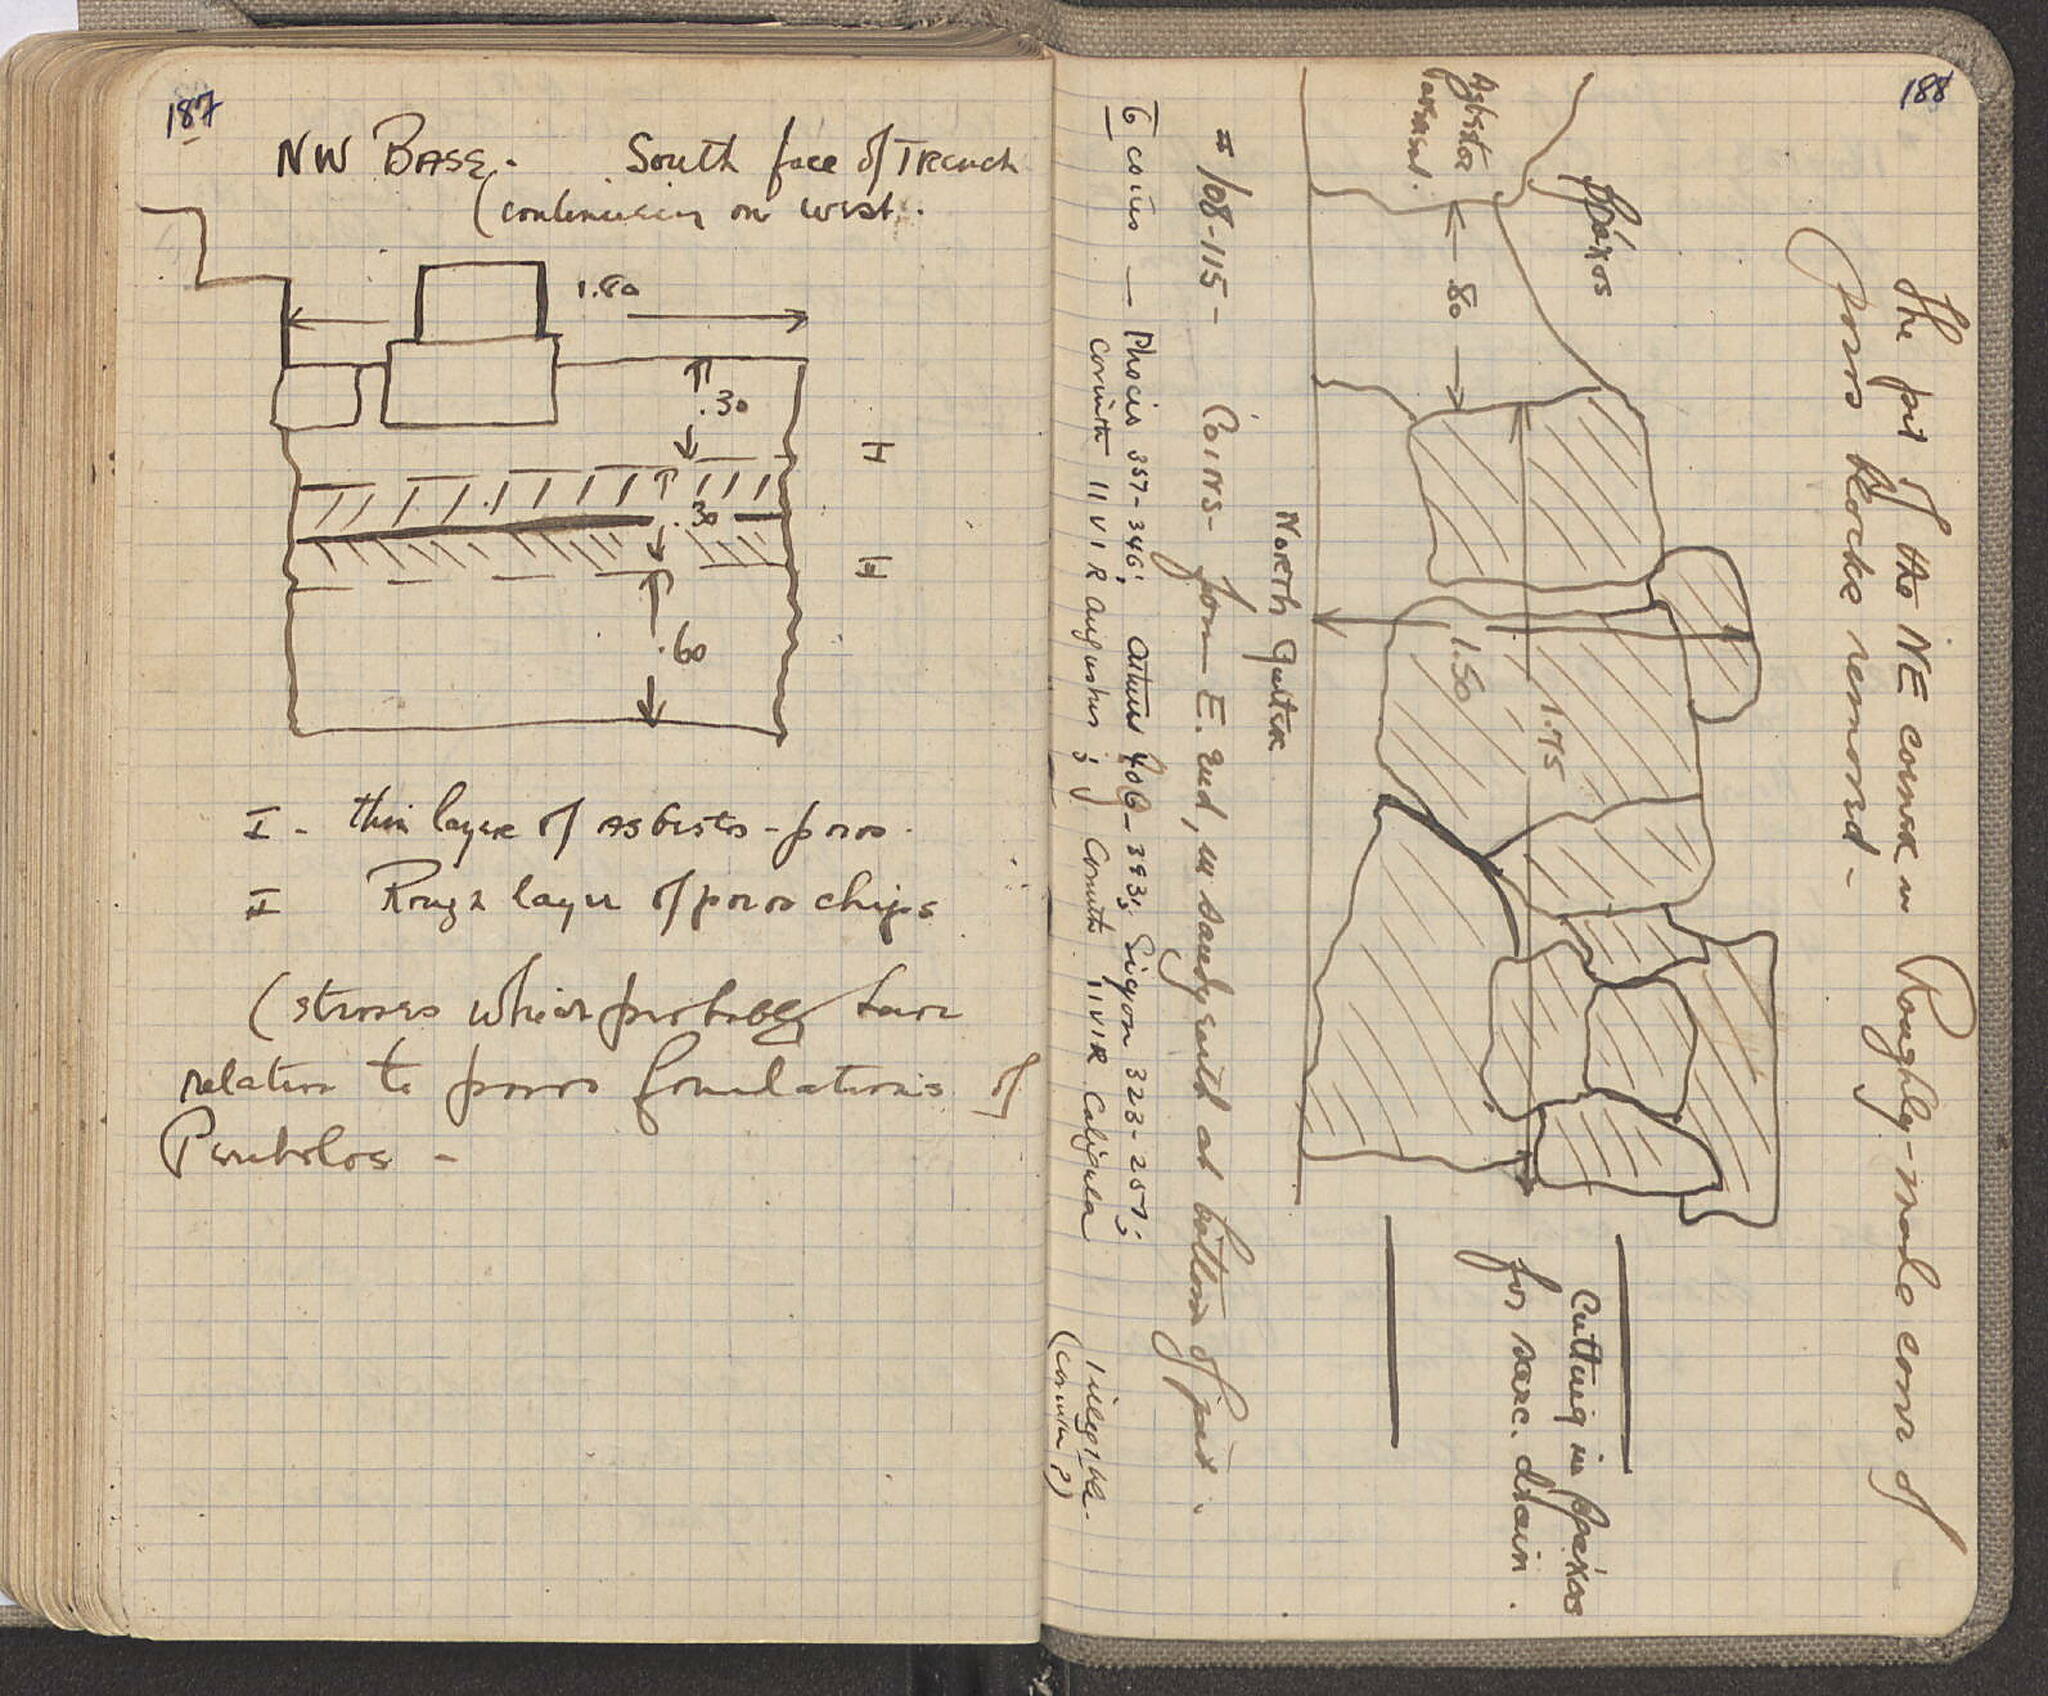 187
NW BASE. South face of TRENCH
(continuing on west.
1.80
.30
I
.30
II
.60
I - thin layer of asbestos-poros.
II Rough layer of poros chips
(stones which probably have
relation to poros foundations of
Peribolos -
188
The pit of the NE corner in Roughly-made cover of
poros blocks removed -
βράχος
.80
1.75
1.50
Cutting in βράχος
for sarc. drain.
North Gutter
/08-115- Coins- from E. End, in sandy earth at bottom of pit.
6 coins — Phocis 357-346; 406-393; Sicyon 323-251;
Corinth IIVIR Augustus; Corinth IIVIR Caligula
1 illegible.
(Corinth?)